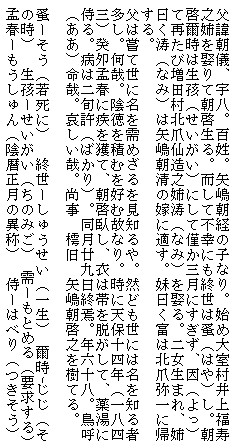 父諱朝儀、宇八。百姓。矢嶋朝経の子なり。始め大室村井上福寿
之姉を娶りて朝啓生る。而して不幸にも終世は蚤（はや）し。朝
啓爾時は生孩（せいがい）にして僅か三月にすぎず、因（よっ）
て再たび増田村北爪仙造之姉涛（なみ）を娶る。二女生まれ、姉
曰く涛（なみ）は矢嶋朝清の嫁に適す。妹曰く富は北爪弥一に帰
する。
父は嘗て世に名を需めざるを見知るや。然ども世には名を知る者
多し。何哉。陰徳を積むを好む故なり。時に天保十四年（一八四
三）癸卯孟春に疾を獲て、朝啓臥し、衣は帯を脱がして、薬湯に
侍る。病は二旬許（ばかり）。同月廿九日終焉。年六十八。烏呼
（ああ）命哉。哀しい哉。尚事　樗旧　矢嶋朝啓之を樹てる。
蚤ーそう（若死に）　終世ーしゅうせい（一生）　爾時ーじじ（そ
の時）　生孩ーせいがい（ちのみご）　需ーもとめる（要求する）
孟春ーもうしゅん（陰暦正月の異称）　侍ーはべり（つきそう）